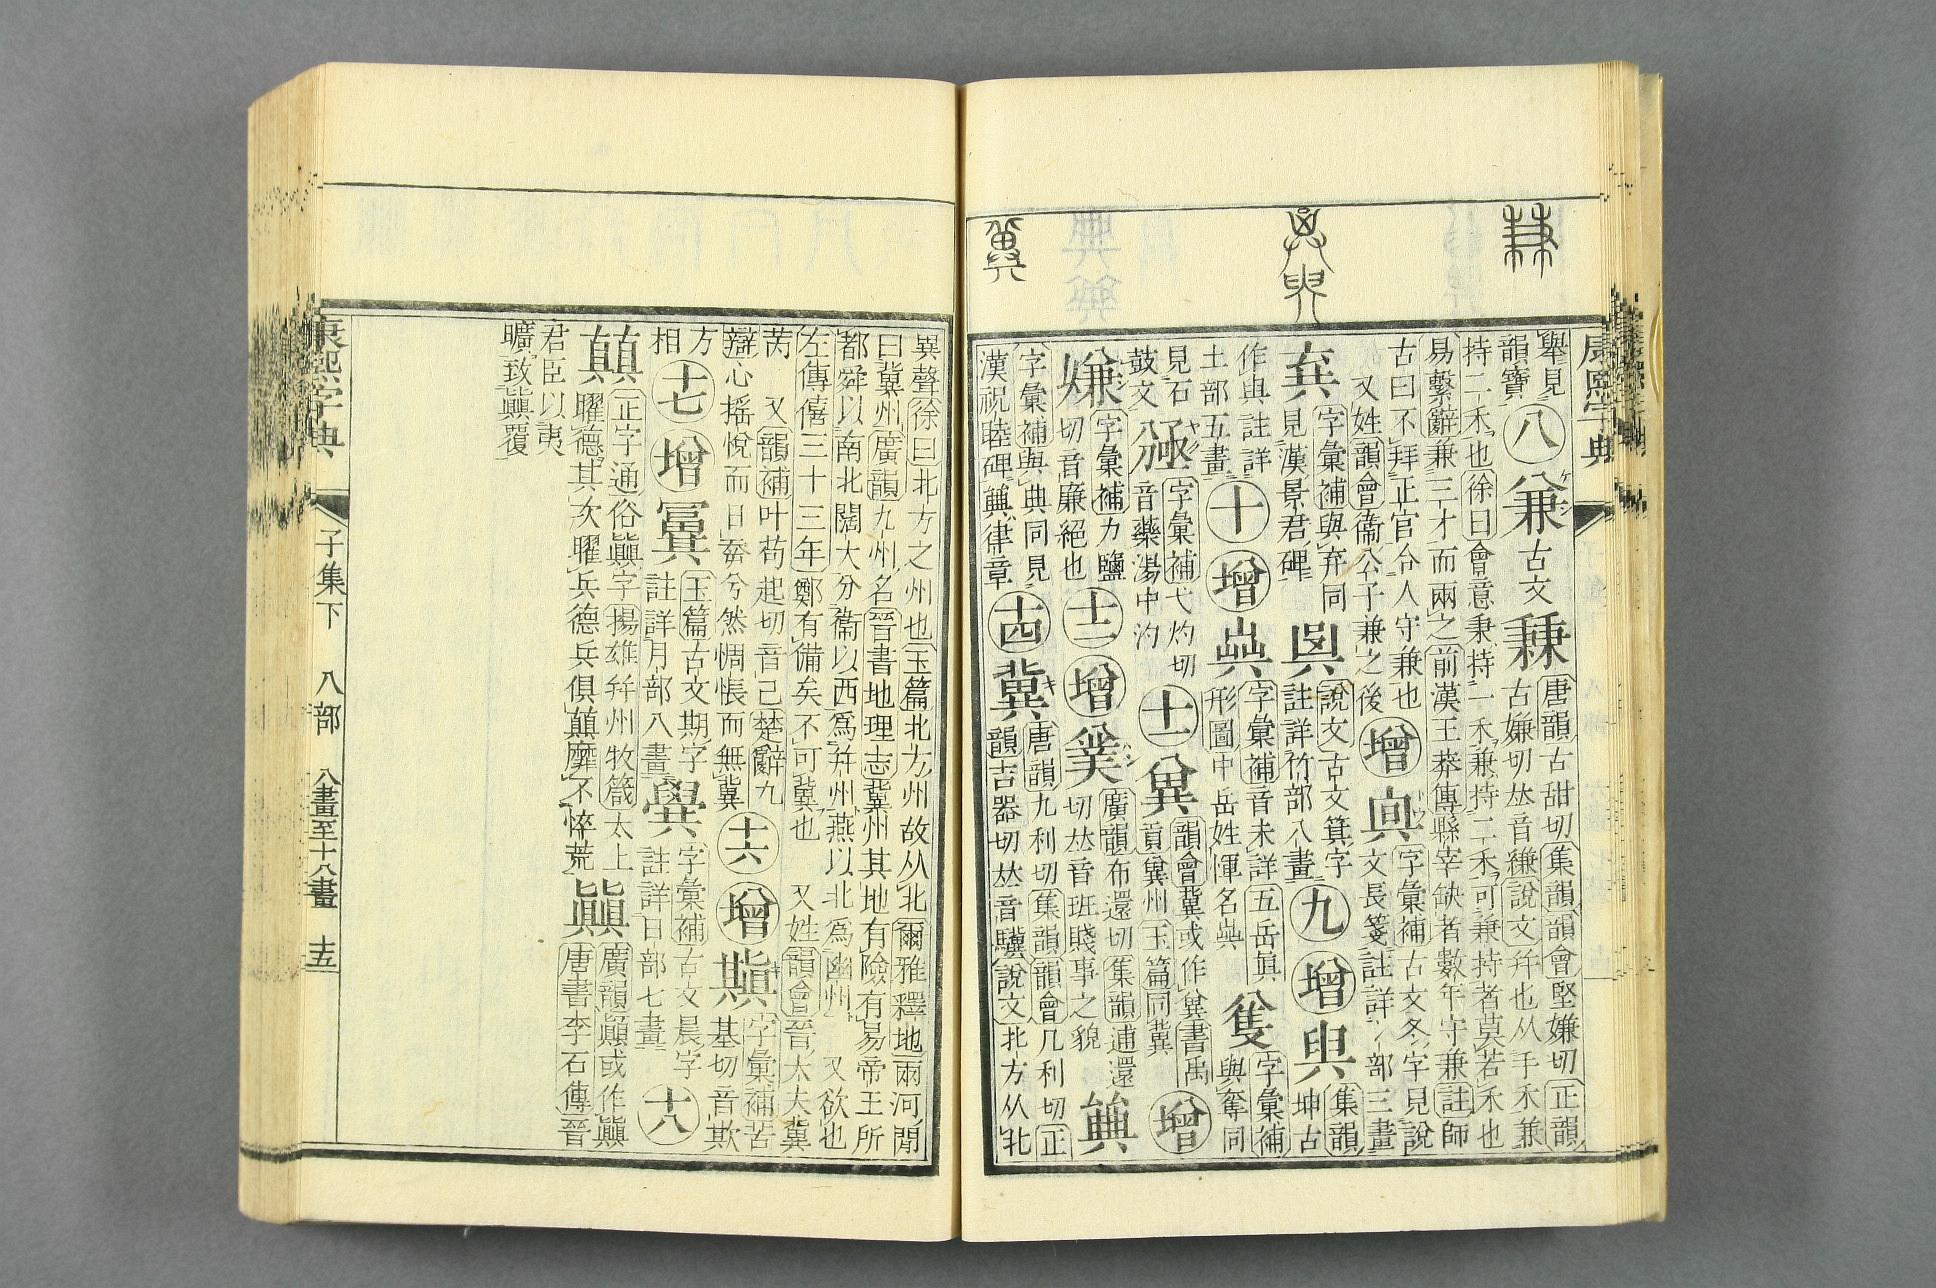 康熙字典
舉見
韻寶
八
兼
古文
秝
唐韻古甜切集韻韻會堅嫌切正韻
古嫌切𠀤音縑說文幷也从手禾兼
持二禾也徐曰會意秉持一禾兼持二禾可兼持者莫若禾也
易繫辭兼三才而兩之前漢王莽傳縣宰缺者數年守兼註師
古曰不拜正官令人守兼也
又姓韻會衞公子兼之後
增
字彙補古文冬字見說
文長箋註詳冫部三畫
字彙補與弃同
見漢景君碑
說文古文箕字
註詳竹部八畫
九
增
與
集韻
坤古
作與註詳
土部五畫
十
增
字彙補音未詳五岳眞
形圖中岳姓惲名
字彙補
與奪同
見石
鼓文
字彙補弋灼切
音藥湯中汋
十一
韻會冀或作㒷書禹
貢㒷州玉篇同冀
增
字彙補力鹽
切音廉絕也
十二
增
廣韻布還切集韻逋還
切𠀤音班賤事之貌
字彙補與典同見
漢祝睦碑典律章
十四
冀
唐韻九利切集韻韻會几利切正
韻吉器切𠀤音驥說文北方从北
異聲徐曰北方之州也玉篇北方州故从北爾雅釋地兩河閒
曰冀州廣韻九州名晉書地理志冀州其地有險有易帝王所
都舜以南北闊大分衞以西爲幷州燕以北爲幽州 又欲也
左傳僖三十三年鄭有備矣不可冀也 又姓韻會晉大夫冀
芮 又韻補叶苟起切音己楚辭九
辯心搖悅而日㚏兮然惆悵而無冀
十六
增
字彙補苦
基切音欺
方
相
十七
增
玉篇古文期字
註詳月部八畫
字彙補古文晨字
註詳日部七畫
十八
顚
正字通俗顚字揚雄幷州牧箴太上
曜德其次曜兵德兵俱顚靡不悴荒
廣韻顚或作
唐書李石傳晉
君臣以夷
曠致顚覆
康熙字典
子集下 八部 八畫至十八畫 十五